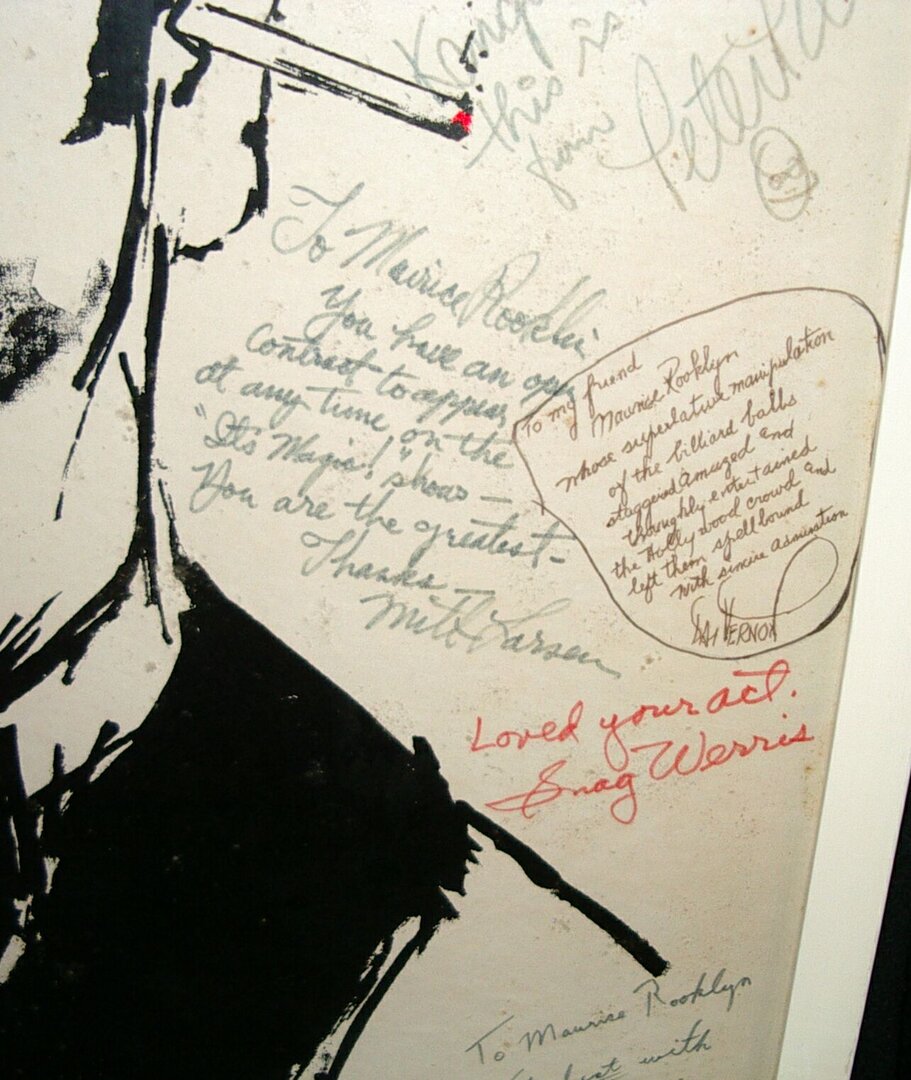 this is
from
To Maurice Rooklin
You have an open
Contract to appear
at any time on the
"It's Magic!" shows —
You are the greatest —
Thanks —
Milt Larsen
To my friend
Maurice Rooklyn
whose superlative manipulation
of the billiard balls
staggered amazed and
thoroughly entertained
the Hollywood crowd and
left them spellbound
With sincere admiration
DAI VERNON
Loved your act.
Snag Werris
To Maurice Rooklyn
best with